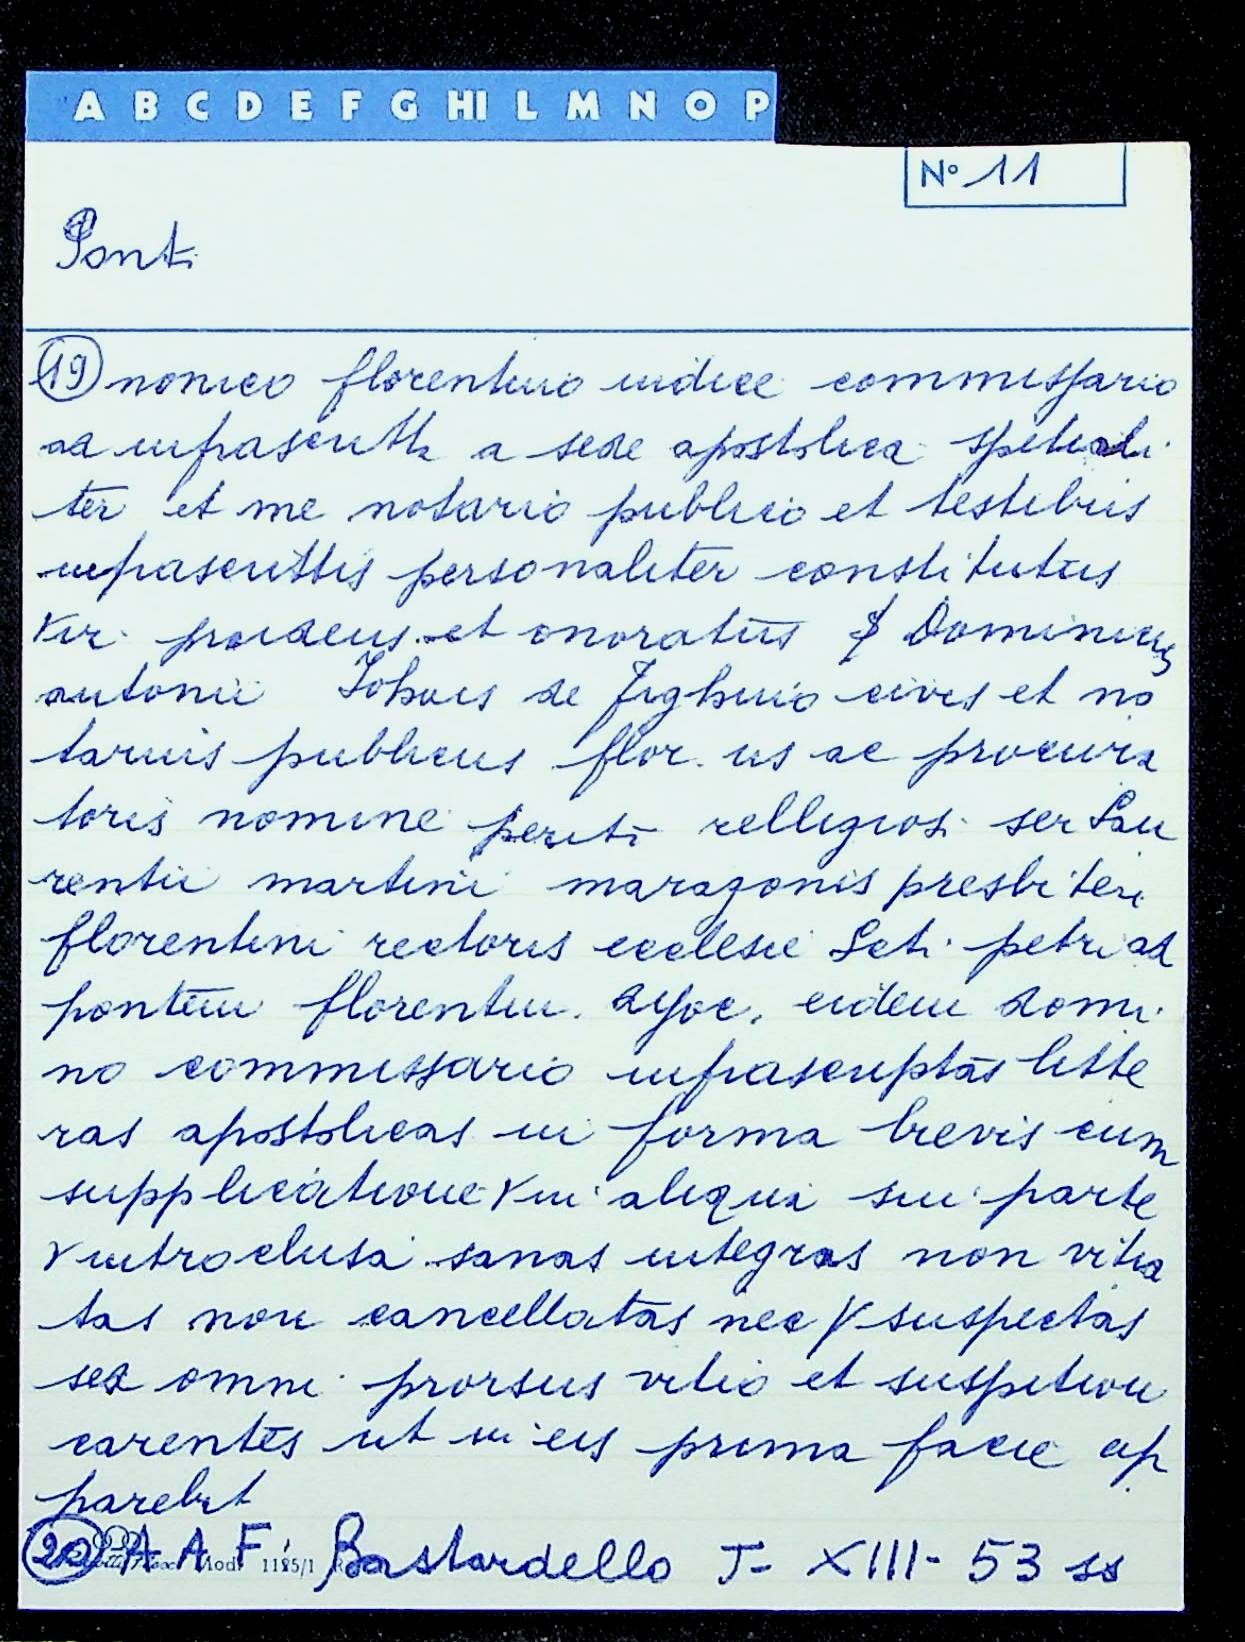 A B C D E F G HI L M N O P
N° 11
Ponti
(19) nonico florentino iudice commissario
ad infrascritta a sede apostolica spetiali
ter et me notario publico et testibus
infrascrittis personaliter constitutus
vir prudens et onoratus S Dominicus
antonii Johnis de Fighino civis et no
tarius publicus flor. us ac procura
toris nomine periti relligiosi ser Lau
rentii martini marazonis presbiteri
florentini rectoris ecclesie Scti petri ad
pontem florentin. dyoc. eidem domi
no commissario infrascriptas litte
ras apostolicas in forma brevis cum
supplicatione V in aliqua sui parte
V introclusa sanas integras non vitia
tas non cancellatas nec V suspectas
sed omni prorsus vitio et suspition
carentes ut in eis prima facie ap
parebat
(20) A A F. Bastardello J- XIII- 53 ss
Mod. 1185/1